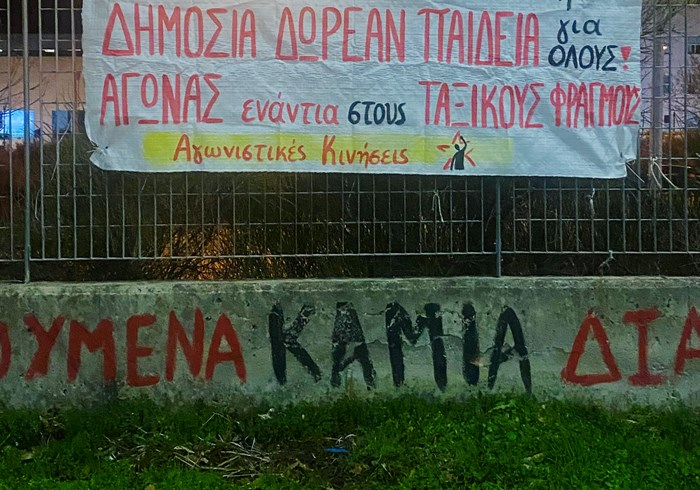 ΔΗΜΟΣΙΑ ΔΩΡΕΑΝ ΠΑΙΔΕΙΑ για ΟΛΟΥΣ!
ΑΓΩΝΑΣ ενάντια στους ΤΑΞΙΚΟΥΣ ΦΡΑΓΜΟΥΣ
Αγωνιστικές Κινήσεις
ΟΥΜΕΝΑ ΚΑΜΙΑ ΔΙΑ